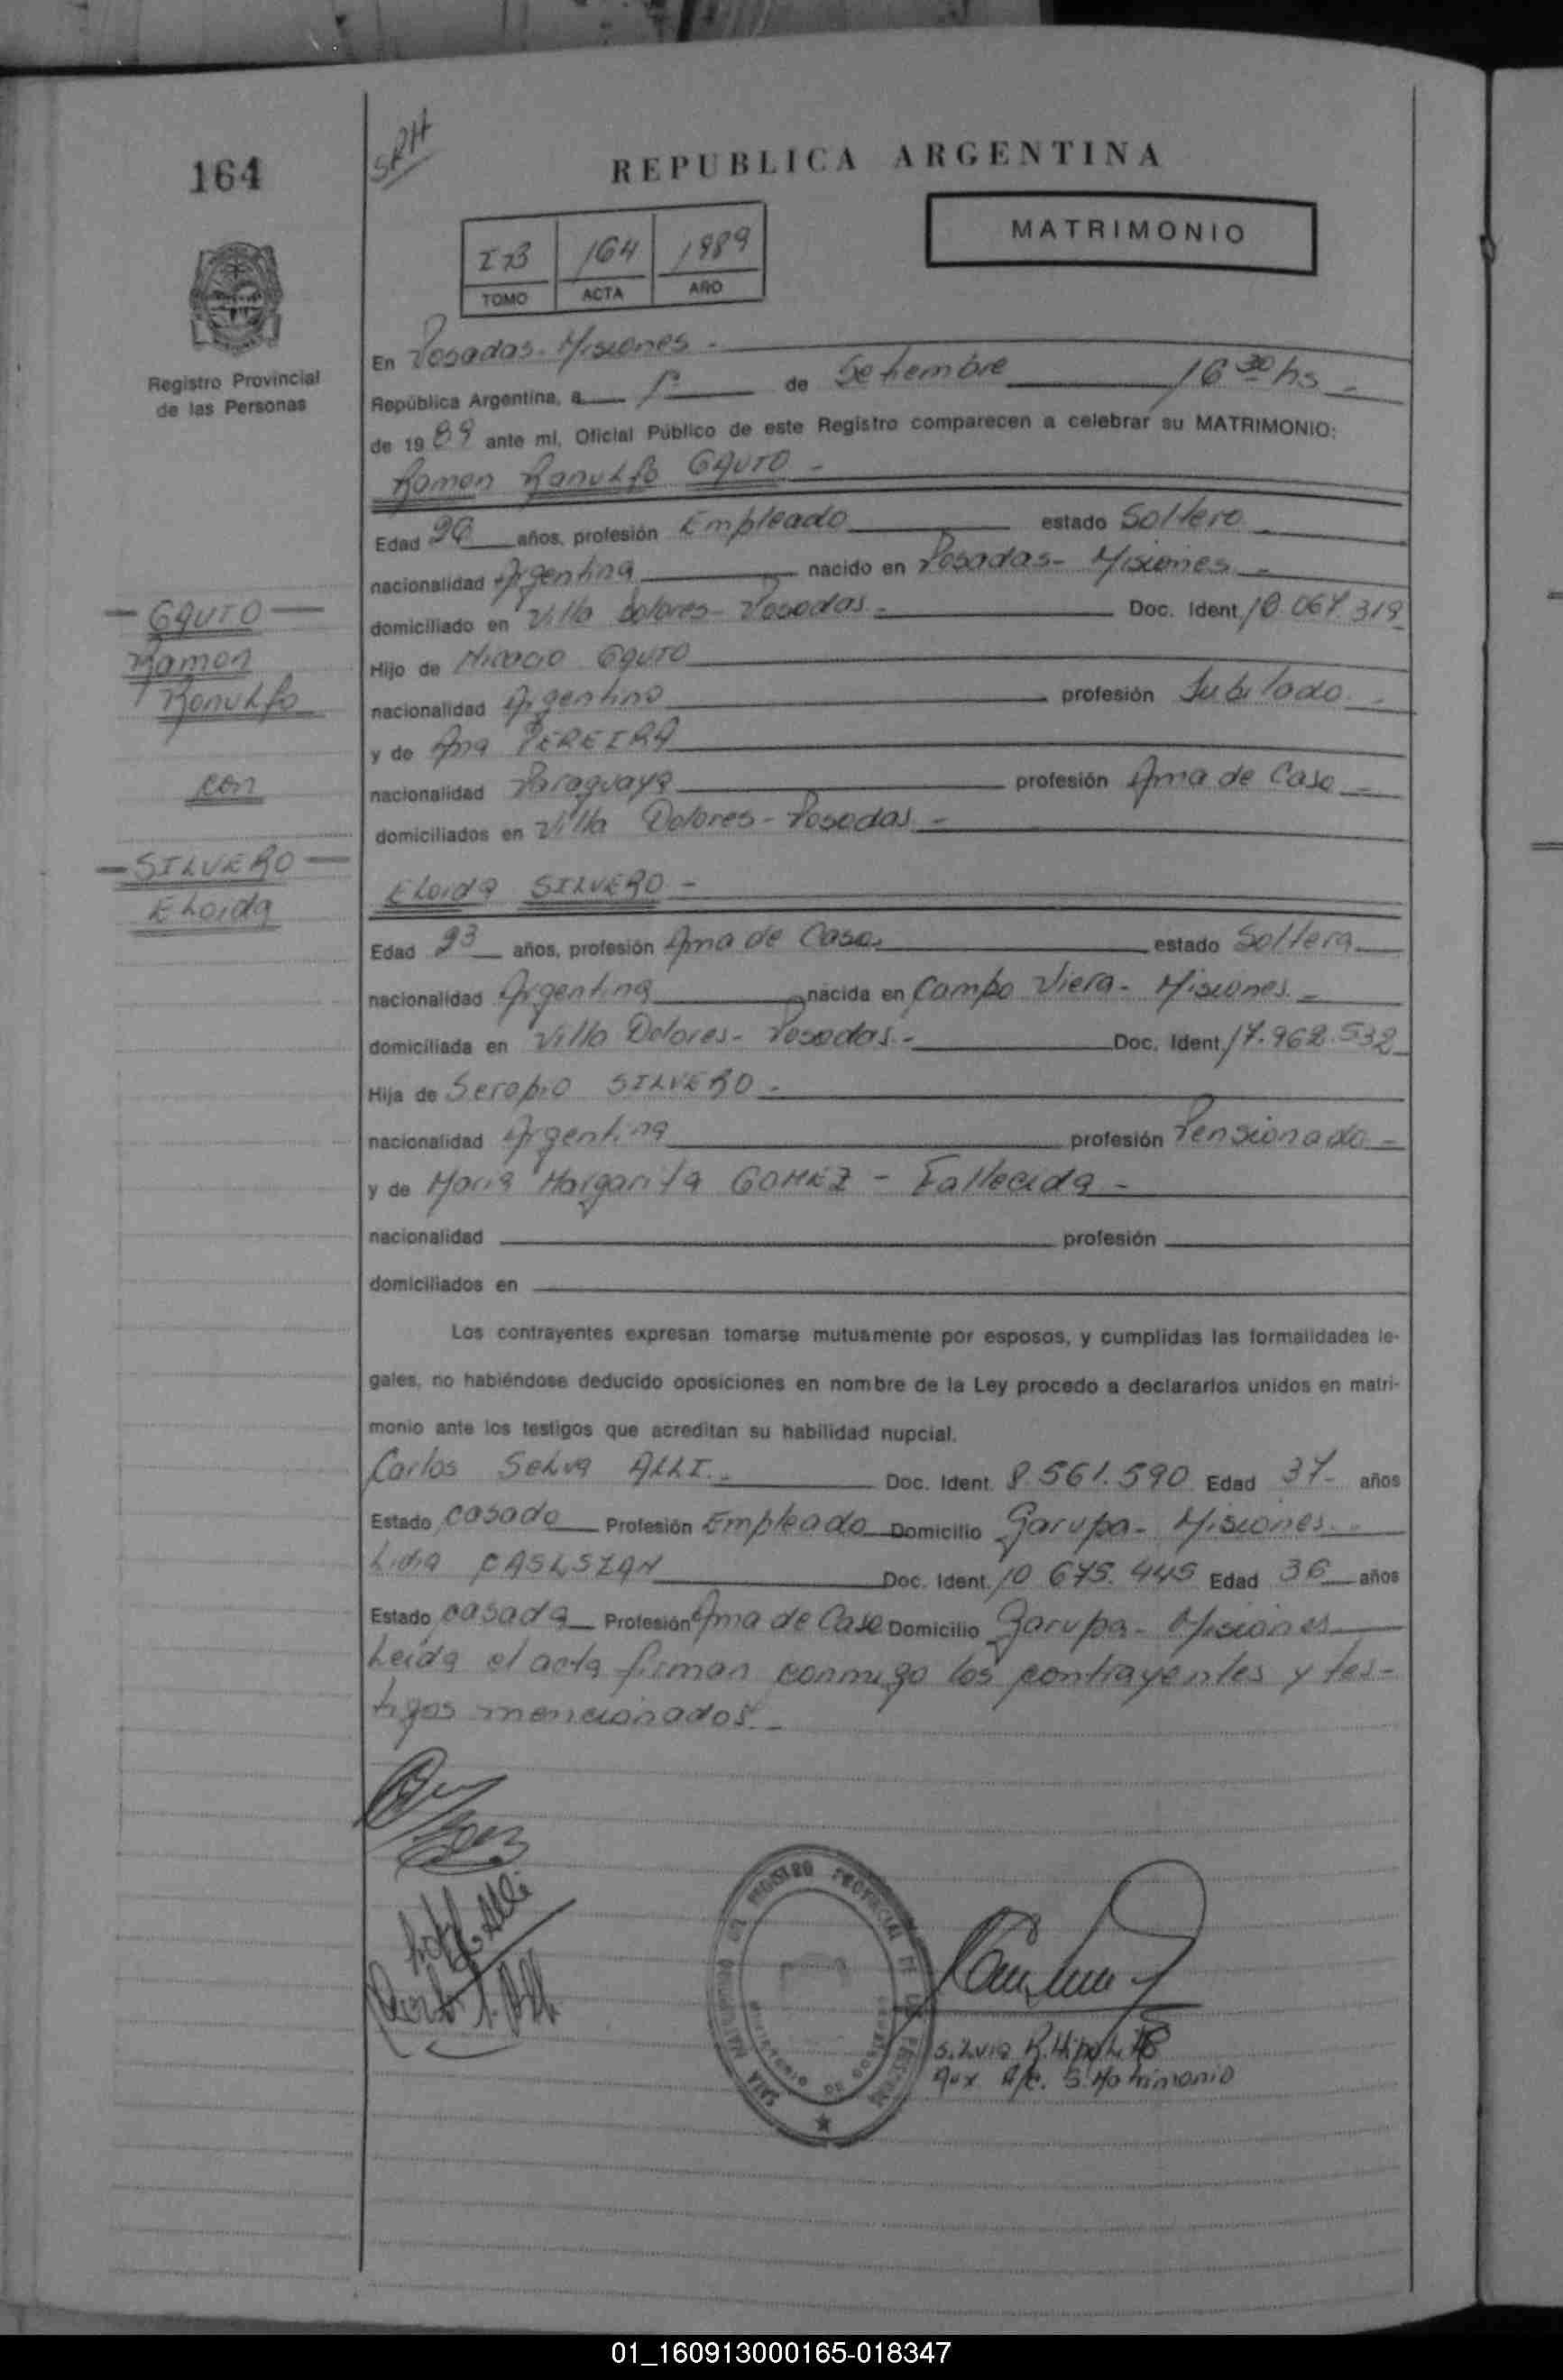 164
SRH
REPUBLICA ARGENTINA
MATRIMONIO
164 1989
TOMO ACTA AÑO
Registro Provincial
de las Personas
En Posadas - Misiones -
República Argentina, a 1º de Setiembre 16 30 hs -
de 1989 ante mí, Oficial Público de este Registro comparecen a celebrar su MATRIMONIO:
Ramon Ranulfo GAUTO -
Edad años, profesión Empleado estado Soltero
nacionalidad Argentina nacido en Posadas - Misiones -
domiciliado en Villa Dolores - Posadas - Doc. Ident. 10.067.319
Hijo de GAUTO
nacionalidad Argentino profesión Jubilado -
y de Ana PEREIRA
nacionalidad Paraguaya profesión Ama de Casa -
domiciliados en Villa Dolores - Posadas -
Eloida SILVERO -
Edad 23 años, profesión Ama de Casa estado Soltera
nacionalidad Argentina nacida en Campo Viera - Misiones -
domiciliada en Villa Dolores - Posadas - Doc. Ident. 17.962.532
Hija de Serapio SILVERO -
nacionalidad Argentina profesión Pensionado -
y de Maria Margarita GOMEZ - Fallecida -
nacionalidad profesión
domiciliados en
Los contrayentes expresan tomarse mutuamente por esposos, y cumplidas las formalidades le-
gales, no habiéndose deducido oposiciones en nombre de la Ley procedo a declararlos unidos en matri-
monio ante los testigos que acreditan su habilidad nupcial.
Carlos Selva ALLI - Doc. Ident. 8.561.590 Edad 37 - años
Estado casado Profesión Empleado Domicilio Garupa - Misiones -
Lidia Doc. Ident. 10 675.445 Edad 36 años
Estado casada Profesión Ama de Casa Domicilio Garupa - Misiones
Leída el acta firman conmigo los contrayentes y tes-
tigos mencionados -
GAUTO
Ramon
Ranulfo
con
SILVERO
Eloida
REGISTRO PROVINCIAL DE LAS PERSONAS
Silvia R. Hipolito
Aux A/c. S. Matrimonio
01_160913000165-018347